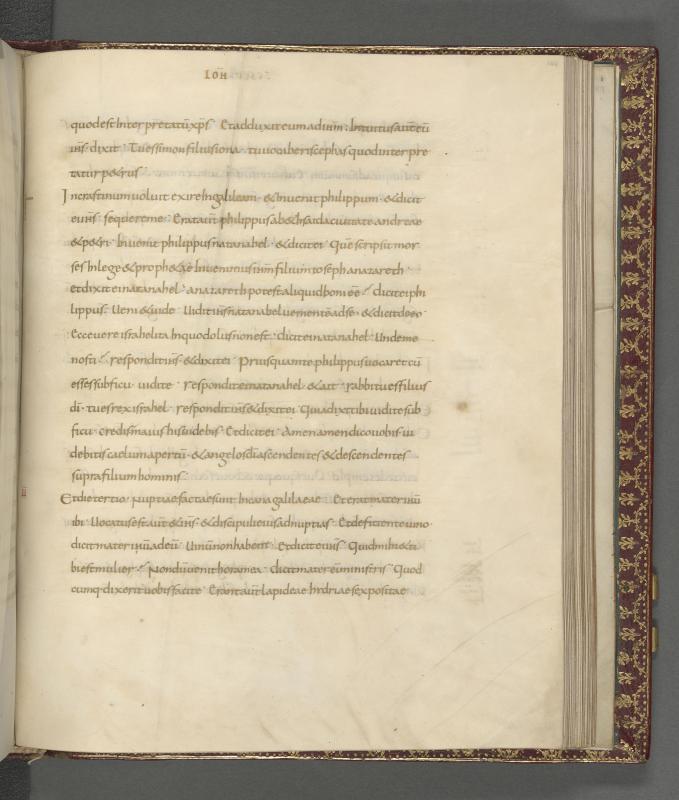 IOH̄
quod est interpretatū xp̄s · Et adduxit eum ad ih̄m · Intuitus aut̄ eū
ih̄s · dixit · Tu es simon filius iona · tu vocaberis cephas quod inter pre
tatur p&rus
In crastinum voluit exire In galileam · & Inuenit philippum · & dicit
ei ih̄s · sequere me · Erat aut̄ philippus a b&hsaida ciuitate andreae
& p&ri · Inuenit philippus natanahel · & dicit ei · Quē scripsit moy
ses In lege & proph&ae Inuenimus ih̄m filium ioseph a nazareth
et dixit ei natanahel · a nazareth potest aliquid boni eē · dicit ei phi
lippus · Ueni & uide · Uidit ih̄s natanahel uenientē ad se · & dicit de eo
Ecce uere israhelita In quo dolus non est · dicit ei natanahel · Unde me
nosti · respondit ih̄s · & dixit ei · Priusquam te philippus uocaret cū
esses sub ficu · uidi te · respondit ei natanahel · & ait · rabbi tu es filius
dī · tu es rex israhel · respondit ih̄s & dixit ei · Quia dixi tibi uidi te sub
ficu · credis maius his uidebis · Et dicit ei · Amen amen dico uobis · ui
debitis caelum apertū · & angelos dī ascendentes & descendentes
supra filium hominis
Et die tertio · Nuptiae factae sunt In cana galilaeae · Et erat mater ih̄u
ibi · Uocatus est aut̄ & ih̄s · & discipuli eius ad nuptias · Et deficiente uino ·
dicit mater ih̄u ad eū · Uinū non habent · Et dicit ei ih̄s · Quid mihi & ti
bi est mulier · Nondū uenit hora mea · dicit mater eius ministris · Quod
cumq· dixerit uobis facite · Erant aut̄ lapideae hydriae sex positae